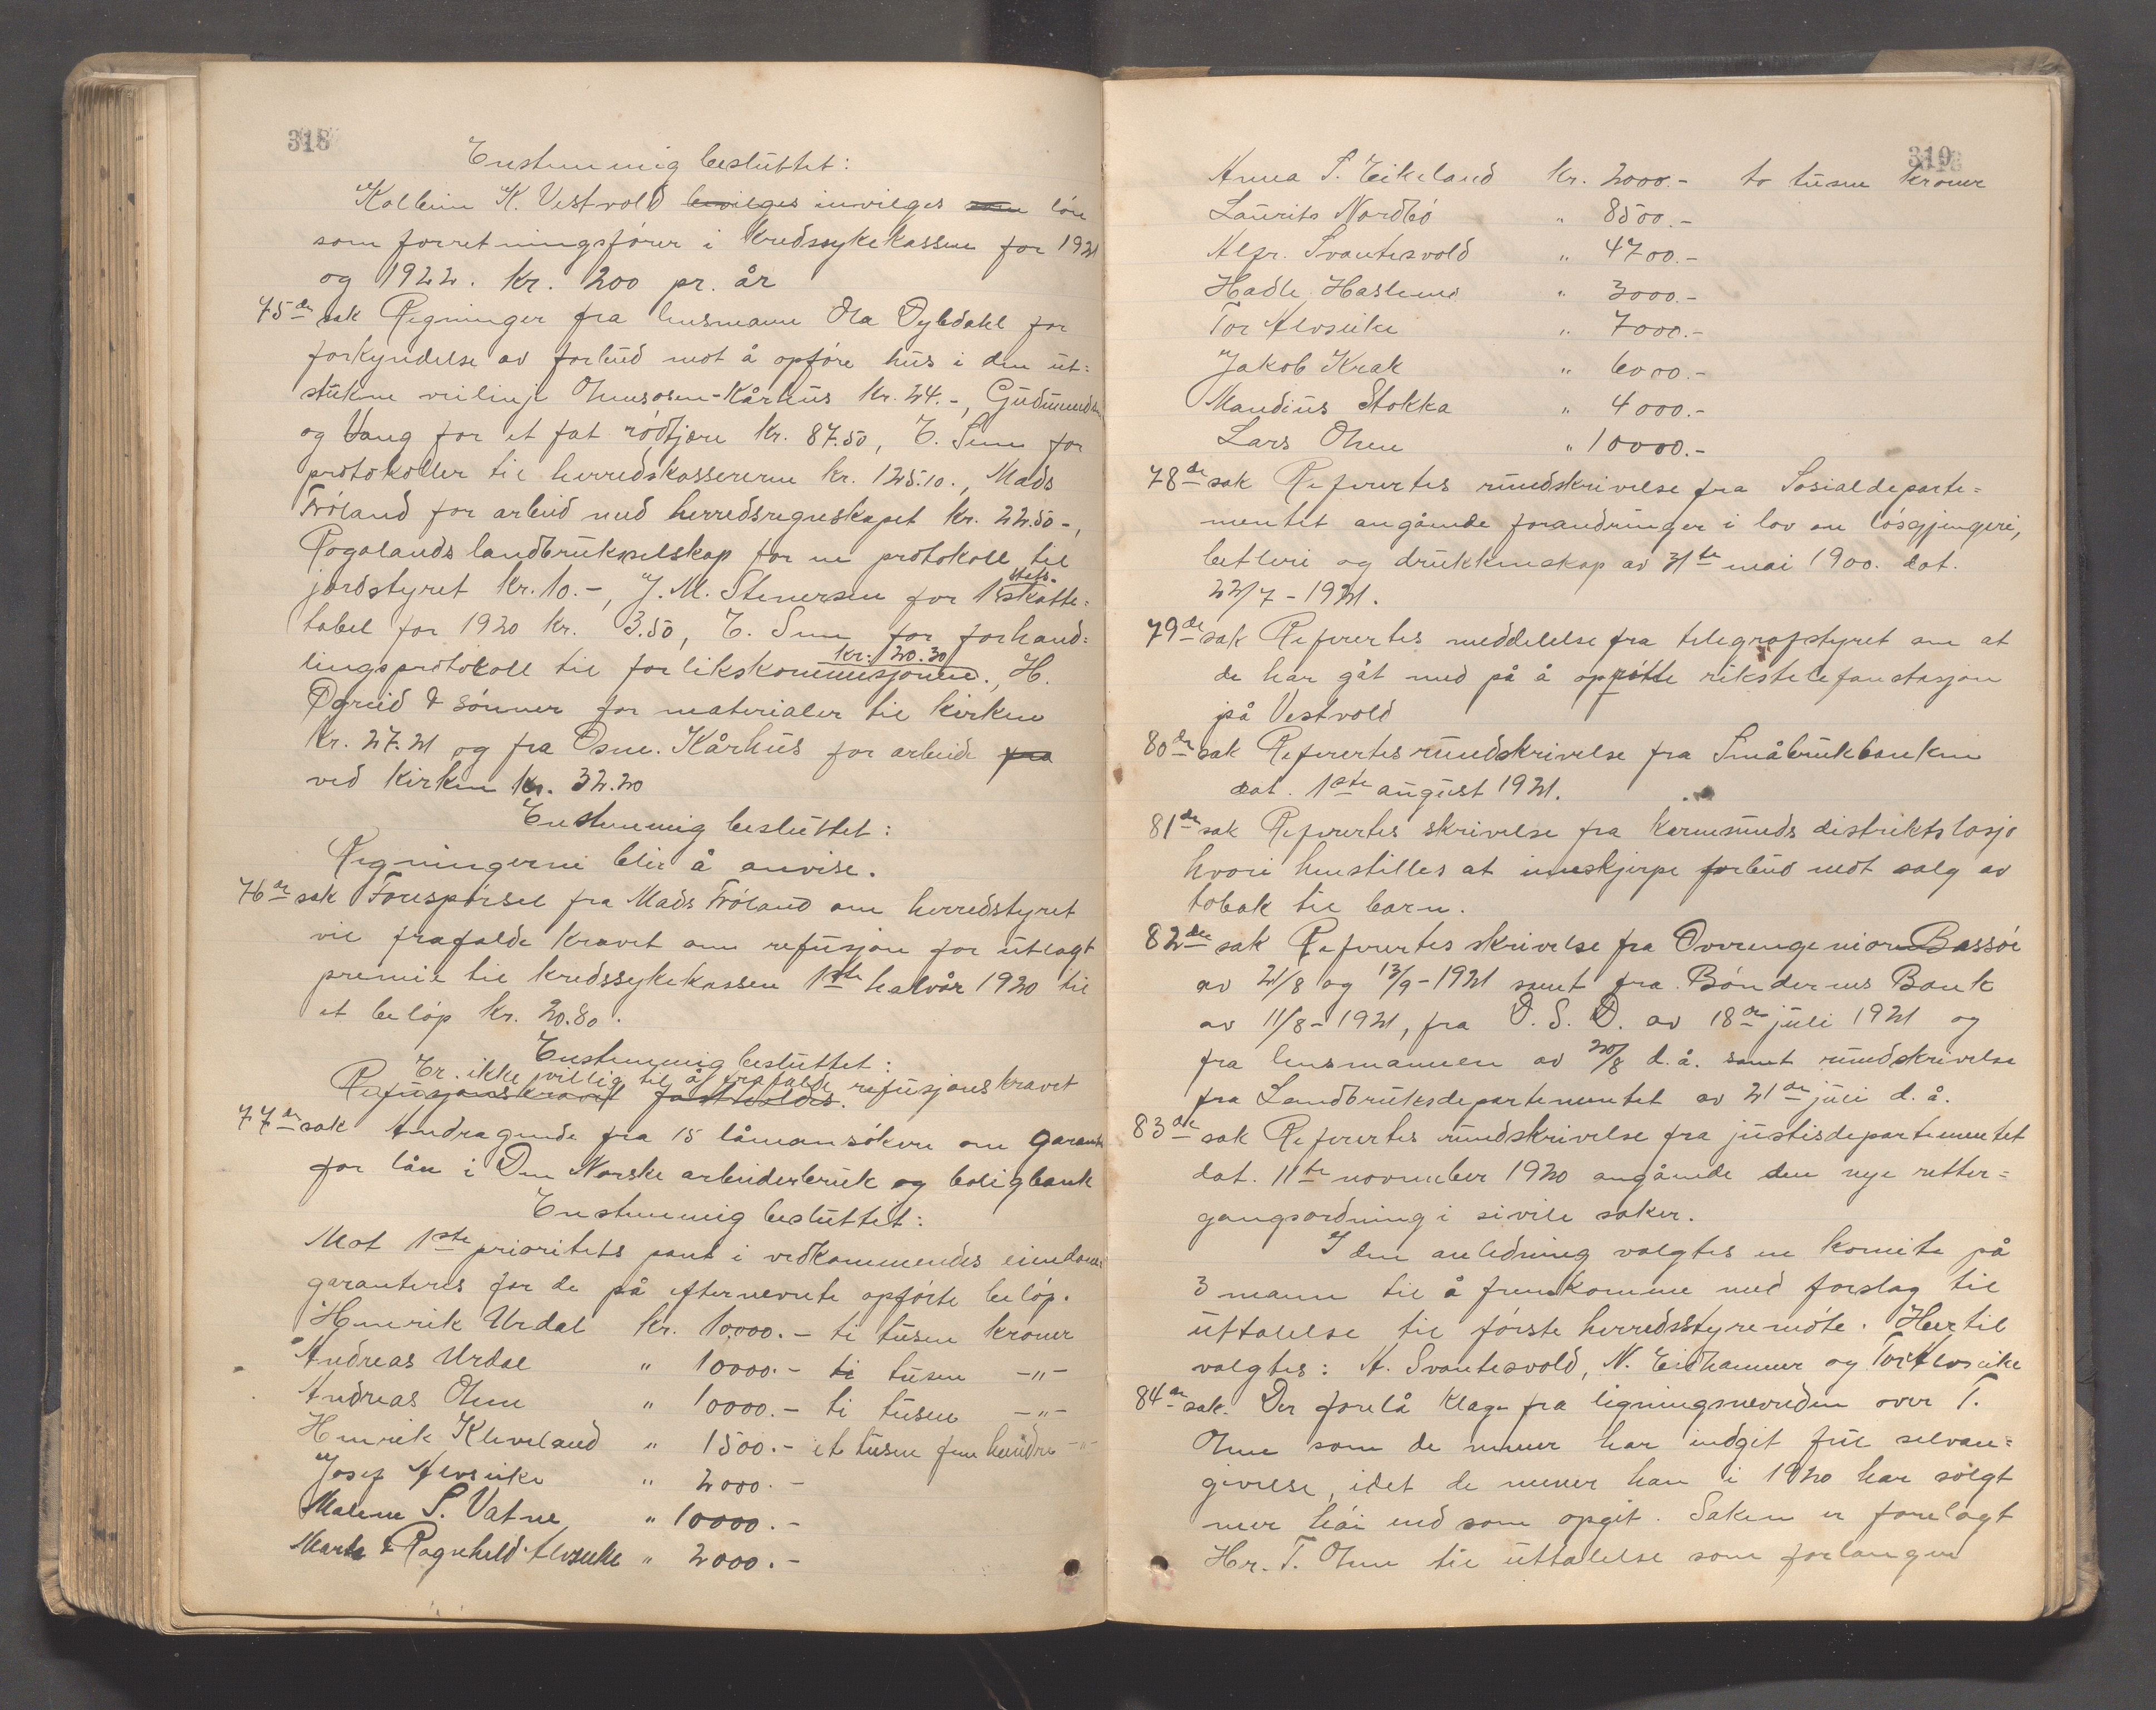 318
Enstemmig besluttet:
Kolbein K. Vestvold bevilges invilges som lön
som forretningsförer i kredssykekassen for 1921
og 1922. kr. 200 pr. år
75de sak Regninger fra lensmann Ola Dybdahl for
forkyndelse av forbud mot å opföre hus i den ut=
stukne veilinje Ohmsosen-Kårhus kr. 24.-, Gudmundsen
og Vang for et fat rödtjære kr. 87.50, T. Sem for
protokoller til herredskassererne kr. 125.10., Mads
Fröland for arbeid med herredsregnskapet kr. 22.50-,
Rogalands landbrukselskap for en protokoll til
jordstyret kr. 10.-, J. M. Stenersen for 1 stats-skatte=
tabel for 1920 kr. 3.50, T. Sem for forhand=
lingsprotokoll til forlikskommisjonen kr. 20.30., H.
Øgreid & sönner for materialer til kirken
kr. 27.21 og fra Osm. Kårhus for arbeide fra
ved kirken kr. 32.20
Enstemmig besluttet:
Regningerne blir å anvise.
76de sak Forespörsel fra Mads Fröland om herredstyret
vil frafalde kravet om refusjon for utlagt
premie til kredssykekassen 1ste halvår 1920 til
et belöp kr. 20.80.
Enstemmig besluttet:
Er ikke villig til å frafalde refusjonskravet
Refusjonskravet fastholdes.
77de sak Andragende fra 15 lånansökere om garanti
for lån i Den Norske arbeiderbruk og boligbank
Enstemmig besluttet:
Mot 1ste prioritets pant i vedkommendes eiendom
garanteres for de på efternevnte opförte belöp.
Henrik Urdal kr. 10000.- ti tusen kroner
Andreas Urdal " 10000.- ti tusen -"-
Andreas Ohm " 10000.- ti tusen -"-
Henrik Kleveland " 1500.- et tusen fem hundre -"-
Josef Alvseike " 2000.-
Malene S. Vatne " 10000.-
Marta & Ragnhild Alvseike " 2000.-
319
Anna S. Eikeland kr. 2000.- to tusen kroner
Laurits Nordbö " 8500.-
Alfr. Svantesvold " 4700.-
Hadle Haslemo " 3000.-
Tor Alvseike " 7000.-
Jakob Krak " 6000.-
Mandius Stokka " 4000.-
Lars Ohm " 10000.-
78de sak Refertes rundskrivelse fra Sosialdeparte=
mentet angående forandringer i lov om lösgjengeri,
betleri og drukkenskap av 31te mai 1900. dat.
22/7-1921.
79de sak Refertes meddelelse fra telegrafstyret om at
de har gåt med på å opprette rikstelefonstasjon
på Vestvold
80de sak Refertes rundskrivelse fra Småbrukbanken
dat. 1ste august 1921.
81de sak Refertes skrivelse fra Karmsunds distriktslosje
hvori henstilles at inneskjerpe forbud mot salg av
tobak til barn.
82de sak Refertes skrivelse fra Overingeniör Bassöe
av 21/8 og 13/9-1921 samt fra Bøndernes Bank
av 11/8-1921, fra D. S. D. av 18de juli 1921 og
fra lensmannen av 20/8 d.å. samt rundskrivelse
fra Landbruksdepartementet av 21de juli d.å.
83de sak Refertes rundskrivelse fra justisdepartementet
dat. 11te november 1920 angående den nye retter=
gangsordning i sivile saker.
I den anledning valgtes en komite på
3 mann til å fremkomme med forslag til
uttalelse til förste herredsstyremöte. Hertil
valgtes: A. Svantesvold, N. Eidhammer og Tor Alvseike
84de sak. Der forelå klage fra ligningsnevnden over T.
Ohm som de mener har indgit feil selvan=
givelse, idet de mener han i 1920 har solgt
mer höi end som opgit. Saken er forelagt
Hr. T. Ohm til uttalelse som forlanger